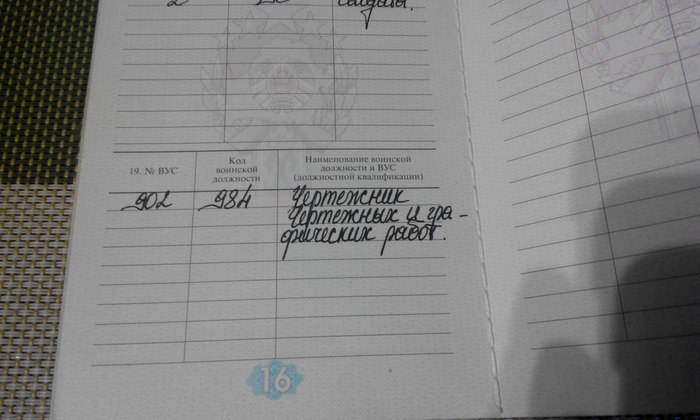 2
солдаты.
19. № ВУС
Код
воинской
должности
Наименование воинской
должности и ВУС
(должностной квалификации)
902
984
Чертежник
чертежных и гра-
фических работ.
16